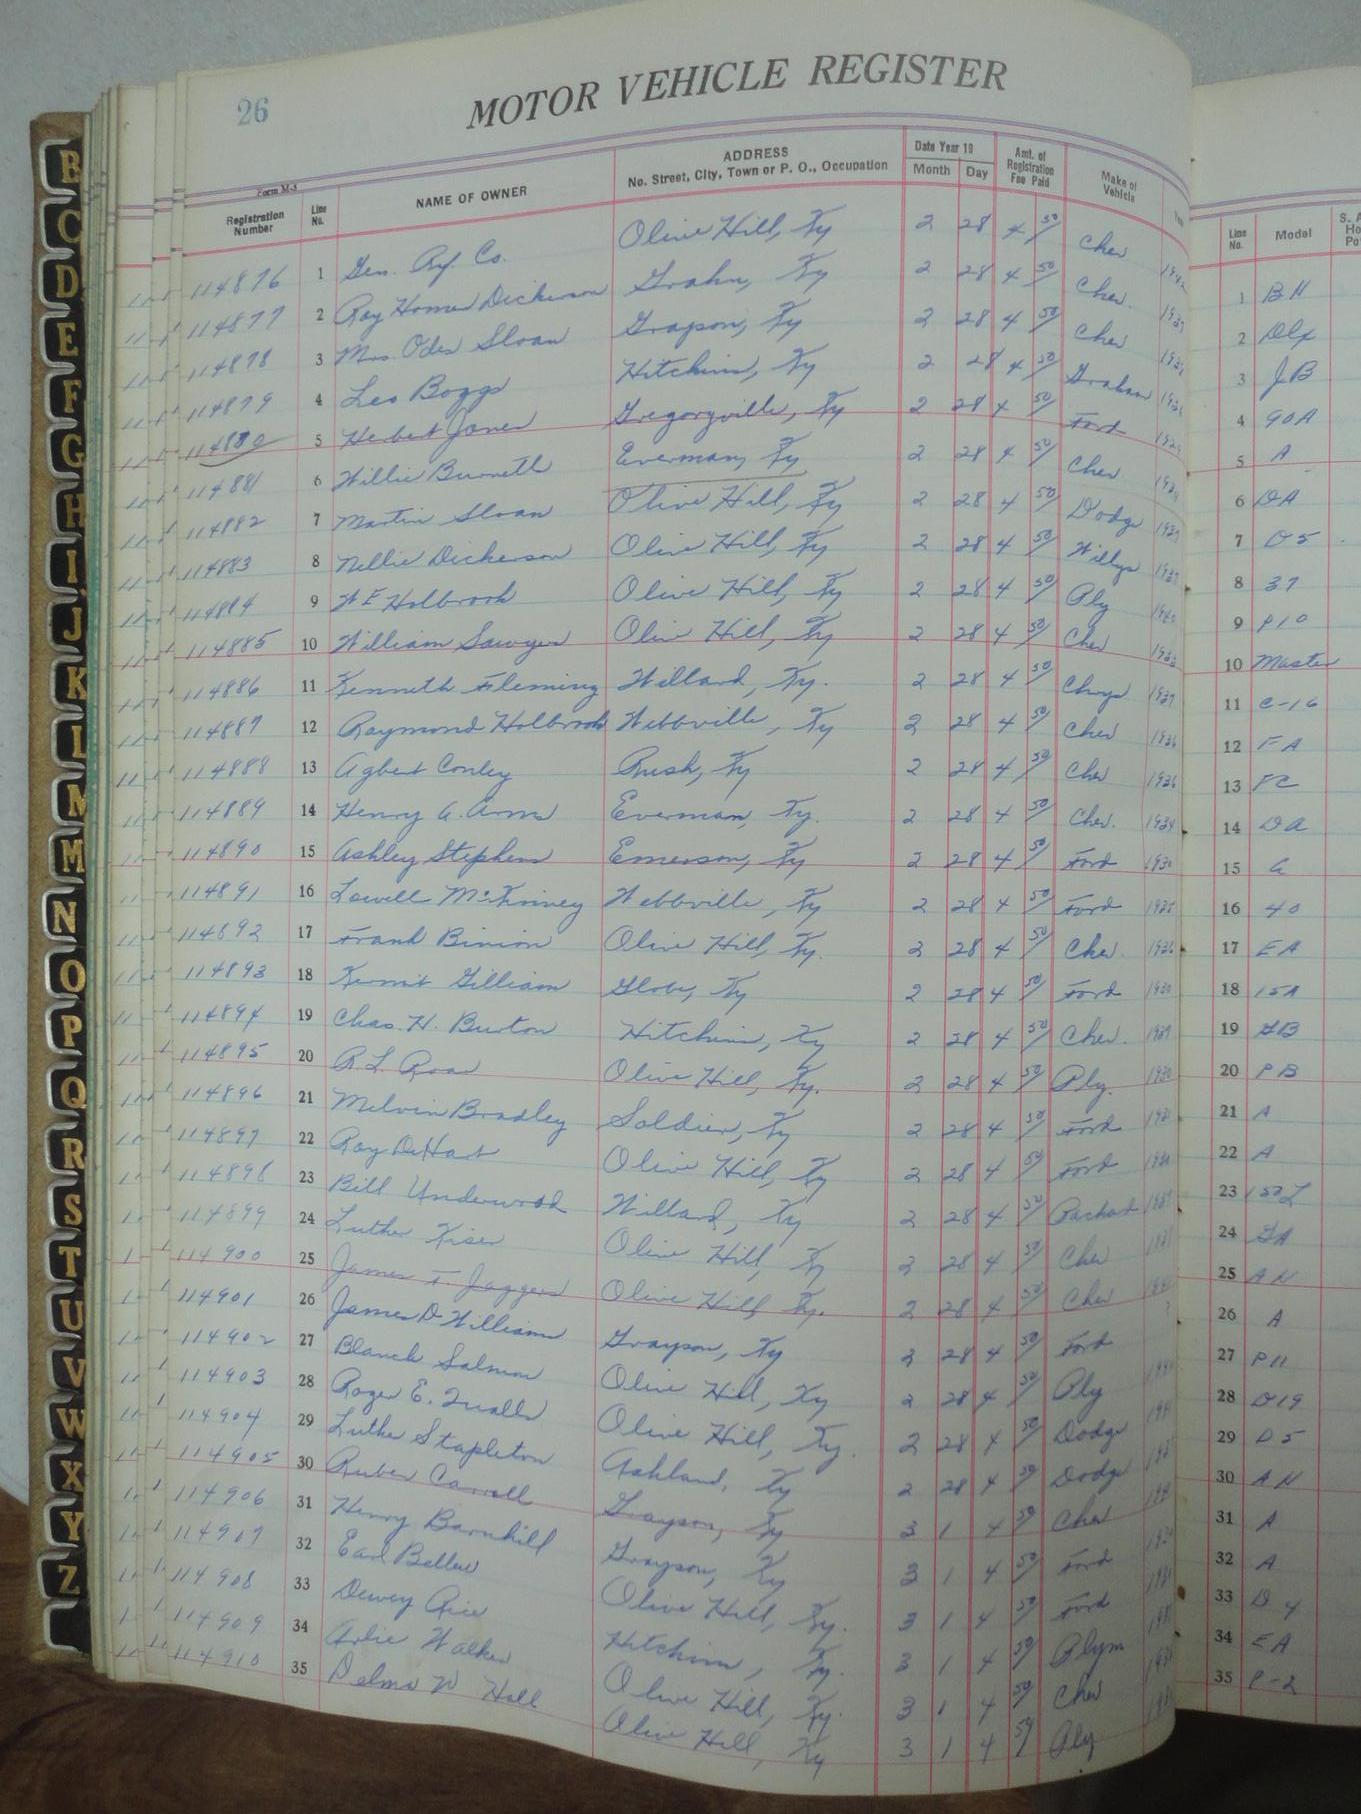 26
MOTOR VEHICLE REGISTER
Form M-5
Registration Number Line No. NAME OF OWNER ADDRESS No. Street, City, Town or P. O., Occupation Date Year 19 Month Day Amt. of Registration Fee Paid Make of Vehicle Line No. Model
114876 1 Gen. Ref. Co. Olive Hill, Ky 2 28 4 50 Chev 1 BH
114877 2 Ray Homer Dickerson Grahn, Ky 2 28 4 50 Chev. 1937 2 Dlx
114878 3 Mrs. Oder Sloan Grayson, Ky 2 28 4 50 Chev 3 JB
114879 4 Leo Boggs Hitchins, Ky 2 28 4 50 Graham 4 90A
114880 5 Herbert Jones Gregoryville, Ky 2 28 4 50 Ford 5 A
114881 6 Willie Burnett Everman, Ky 2 28 4 50 Chev 6 DA
114882 7 Martin Sloan Olive Hill, Ky 2 28 4 50 Dodge 1937 7 D5
114883 8 Nellie Dickerson Olive Hill, Ky 2 28 4 50 Willys 1937 8 37
114884 9 W E Holbrook Olive Hill, Ky 2 28 4 50 Ply 1940 9 P10
114885 10 William Sawyer Olive Hill, Ky 2 28 4 50 Chev 1933 10 Master
114886 11 Kenneth Fleming Willard, Ky. 2 28 4 50 Chrys 1937 11 C-16
114887 12 Raymond Holbrook Webbville, Ky 2 28 4 50 Chev 1936 12 FA
114888 13 Agbert Conley Rush, Ky 2 28 4 50 Chev 1936 13 FC
114889 14 Henry G. Arms Everman, Ky. 2 28 4 50 Chev. 1934 14 DA
114890 15 Ashley Stephens Emerson, Ky 2 28 4 50 Ford 1930 15 A
114891 16 Lowell McKinney Webbville, Ky 2 28 4 50 Ford 1935 16 40
114892 17 Frank Binion Olive Hill, Ky. 2 28 4 50 Chev. 1936 17 EA
114893 18 Kermit Gilliam Globe, Ky 2 28 4 50 Ford 1930 18 15A
114894 19 Chas. H. Burton Hitchins, Ky 2 28 4 50 Chev. 1937 19 GB
114895 20 R.L. Roar Olive Hill, Ky. 2 28 4 50 Ply. 20 PB
114896 21 Melvin Bradley Soldier, Ky 2 28 4 50 Ford 21 A
114897 22 Ray DeHart Olive Hill, Ky 2 28 4 50 Ford 22 A
114898 23 Bill Underwood Willard, Ky 2 28 4 50 Packard 1937 23 150L
114899 24 Luther Kiser Olive Hill, Ky 2 28 4 50 Chev 24 GA
114900 25 James T. Jaggers Olive Hill, Ky. 2 28 4 50 Chev 25 AH
114901 26 James D Williams Grayson, Ky 2 28 4 50 Ford 26 A
114902 27 Blanch Salmon Olive Hill, Ky 2 28 4 50 Ply 27 P11
114903 28 Roger E. Qualls Olive Hill, Ky. 2 28 4 50 Dodge 28 D19
114904 29 Luther Stapleton Ashland, Ky 2 28 4 50 Dodge 29 D5
114905 30 Ruben Carroll Grayson, Ky 3 1 4 50 Chev 30 AH
114906 31 Henry Barnhill Grayson, Ky 3 1 4 50 Ford 31 A
114907 32 Earl Bellew Olive Hill, Ky. 3 1 4 50 Ford 32 A
114908 33 Dewey Rice Hitchins, Ky. 3 1 4 50 Plym 33 D4
114909 34 Arlie Walker Olive Hill, Ky. 3 1 4 50 Chev 34 EA
114910 35 Delmo W Hall Olive Hill, Ky 3 1 4 50 Ply 35 P-2
B
C
D
E
F
G
H
I
J
K
L
M
M
N
O
P
Q
R
S
T
U
V
W
X
Y
Z